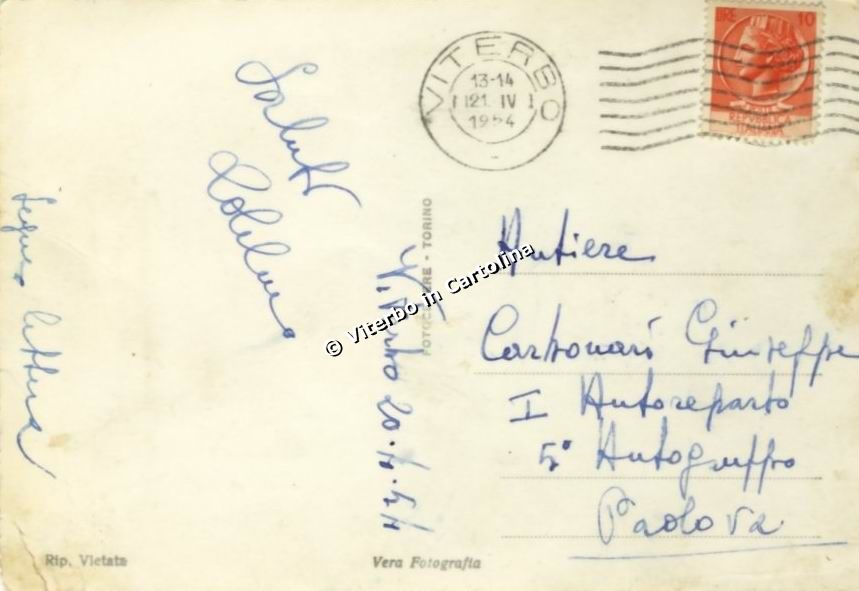 VITERBO
13-14
21 IV
1954
LIRE 10
REPUBBLICA
ITALIANA
Saluti
Segue lettera
Viterbo 20.4.54
FOTOCELERE - TORINO
© Viterbo in Cartolina
Autiere
Carbonari Giuseppe
I Autoreparto
5° Autogruppo
Padova
Rip. Vietata
Vera Fotografia